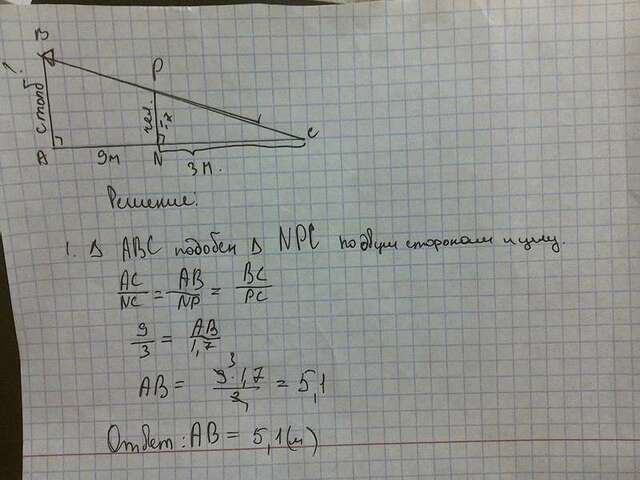 B
?
столб
A
9м
P
чел.
1,7
N
3м.
C
Решение:
1. Δ ABC подобен Δ NPC по двум сторонам и углу.
AC/NC = AB/NP = BC/PC
9/3 = AB/1,7
AB = 9·1,7/3 = 5,1
Ответ: AB = 5,1(м)